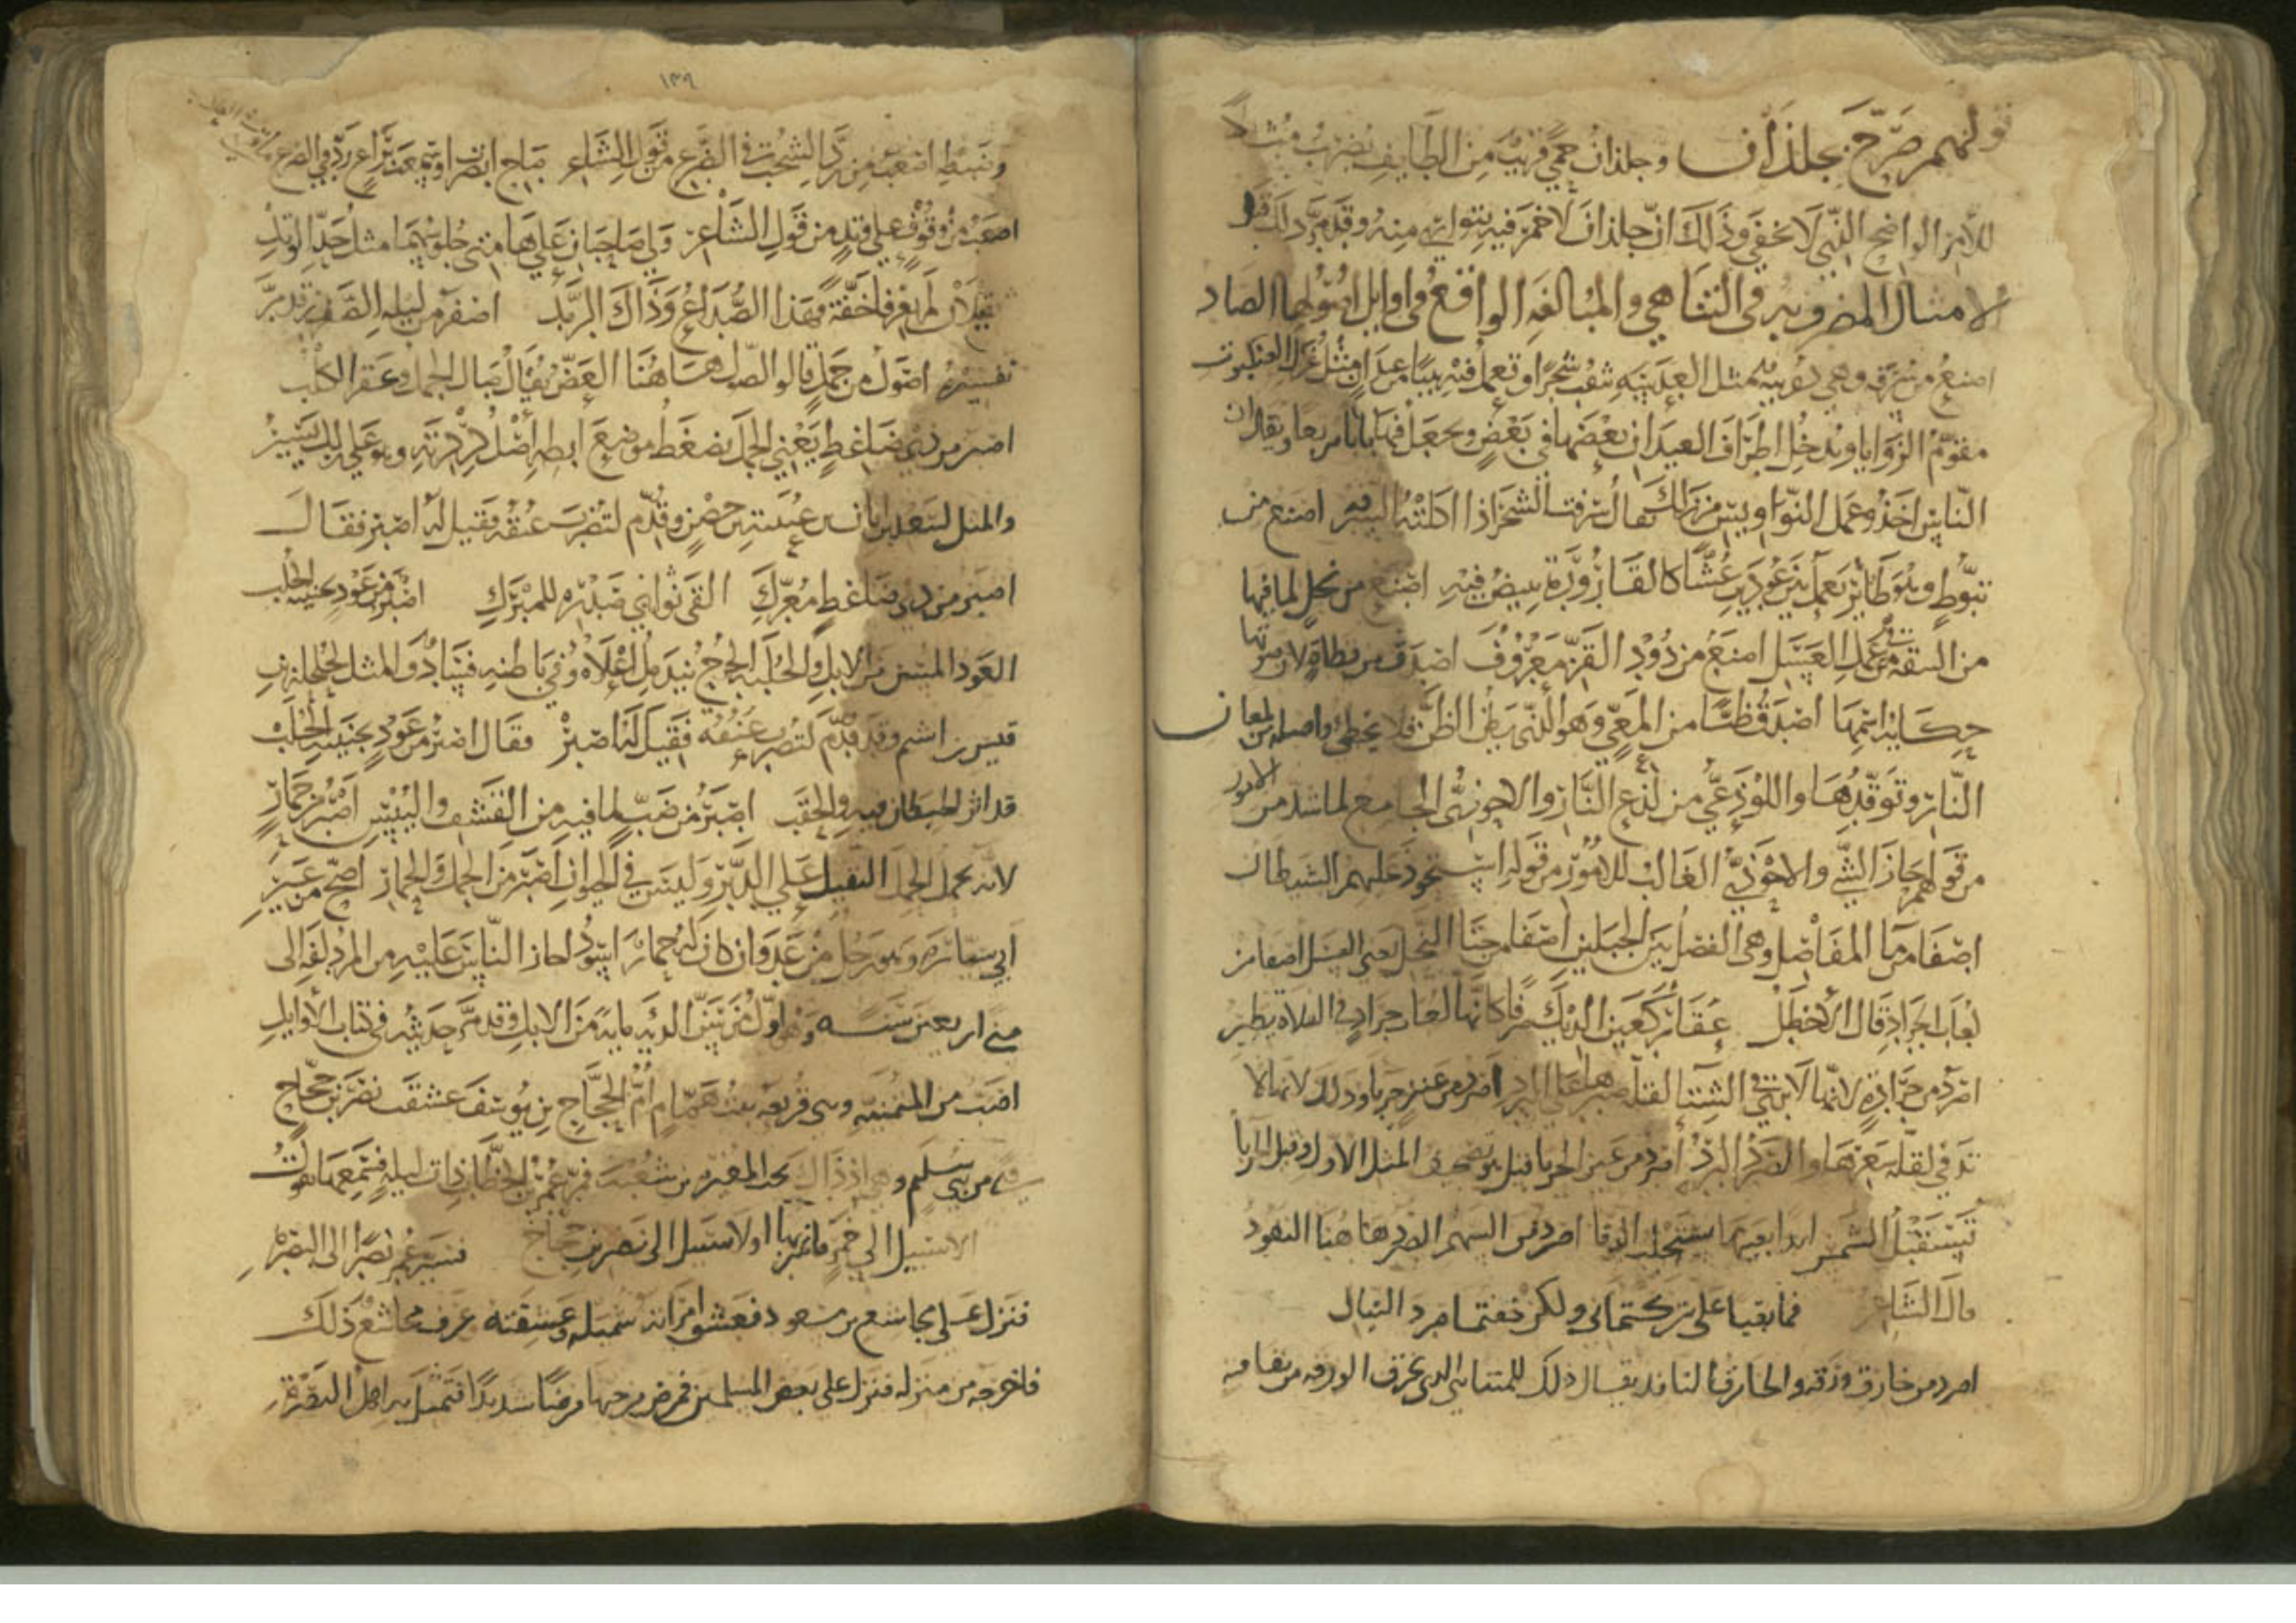 قولهم صَرَّحَ بجلذان وجلذان حِمًى قريب من الطايف يُضرَبُ مثلاً
للأمر الواضح الذي لا يخفى وذلك ان جلذان لا خمر فيه يتوارى منه وقد مر ذلك قبل
الامثال المضروبه في التناهي والمبالغه الواقع في اوايل اصولها الصاد
اصنع من سرفه وهي دويبه مثل العدسه تثقب شجرا وتعمل فيه بيتا من عيدان مثل غزل العنكبوت
مقوّم الزوايا ويدخل اطراف العيدان بعضها في بعض ويجعل فيها بابا مربعا ويقال ان
الناس اخذوا عمل النواويس من ذلك يقال سرفت الشجر اذا اكلته السرفه اصنع من
تنوّط وهو طاير يعمل بين عودين عشا كالقارورة يبيض فيه اصنع من نحل لما فيها
من النيقه في عمل العسل اصنع من دود القز معروف اصدق من قطاة لان صوتها
حكاية اسمها اصدق ظنا من المعي وهو الذي يظن الظن فلا يخطئ واصله من لمعان
النار وتوقدها واللوذعي من لذع النار والاحوزي الجامع لما شذ من الامور
من قولهم حاز الشيء والاحوذي الغالب للامور من قوله استحوذ عليهم الشيطان
اصفا من ما المفاصل وهي الفصل بين الجبلين اصفا من جنا النحل يعني العسل اصفا من
لعاب الجراد قال الاخطل عقار كعين الديك صرفا كانها لعاب جراد في الفلاة يطير
اصرد من جرادة لانها لا ترى في الشتا لقلة صبرها على البرد اصرد من عنز جربا وذلك لانها لا
تدفى لقلة شعرها والصرد البرد اصرد من عين الحربا قيل هو تصحيف المثل الاول وقيل الحربا
تستقبل الشمس ابدا بعينها تستجلب الدفا اصرد من السهم الصرد هاهنا النفوذ
قال الشاعر فما بقيا علي تركتماني ولكن خفتما صرد النبال
اصرد من خازق ورقه والخازق النافذ يقال ذلك للمتناهي الذي يخزق الورقه من ثقافه
١٣٩
وضبطه اصعب من رد الشخب في الضرع من قول الشاعر صاح ابصرت او سمعت براع رد في الضرع
اصعب من وقوف على وتد من قول الشاعر ولي صاحبان على هامتي جلوسهما مثل حد الوتد
ثقيلان لم يعرفا خفة فهذا الصداع وذاك الرمد اصفر من ليله الصدر قد مر
تفسيره اصول من جمل قالوا الصول هاهنا العض يقال صال الجمل وعقر الكلب
اصبر من ذي ضاغط يعني الجمل يضغط موضع ابطه اصل كركرته وهو على ذلك يسير
والمثل لسعد بن ابان بن عيينه بن حصن وقدم لتضرب عنقه فقيل له اصبر فقال
اصبر من ذي ضاغط معرك القى بواني صدره للمبرك اصبر من عود بجنبيه الجلب
العود المسن من الابل والجلب الجرح يندمل اعلاه وفي باطنه فساد والمثل لحلحله بن
قيس بن اشيم وقد قدم لتضرب عنقه فقيل له اصبر فقال اصبر من عود بجنبيه الجلب
قد اثر البطان فيه والحقب اصبر من ضب لما فيه من القشف واليبس اصبر من حمار
لانه يحمل الحمل الثقيل على الدبر وليس في الحيوان اصبر من الجمل والحمار اصح من عير
ابي سياره وهو رجل من عدوان كان له حمار اسود اجاز الناس عليه من المزدلفه الى
منى اربعين سنه وهو اول من سن الديه مايه من الابل وقد مر حديثه في كتاب الاوايل
اصب من المتمنيه وهي فريعه بنت همام ام الحجاج بن يوسف عشقت نصر بن حجاج
من بني سليم وهي اذ ذاك تحت المغيره بن شعبه فمر عمر بن الخطاب ذات ليله فسمعها تقول
الا سبيل الى خمر فاشربها او لا سبيل الى نصر بن حجاج فسير عمر نصرا الى البصره
فنزل على مجاشع بن مسعود فعشق امراته شميله وعشقته عرف مجاشع ذلك
فاخرجه من منزله فنزل على بعض المسلمين فمرض من حبها مرضا شديدا فتمثل به اهل البصره